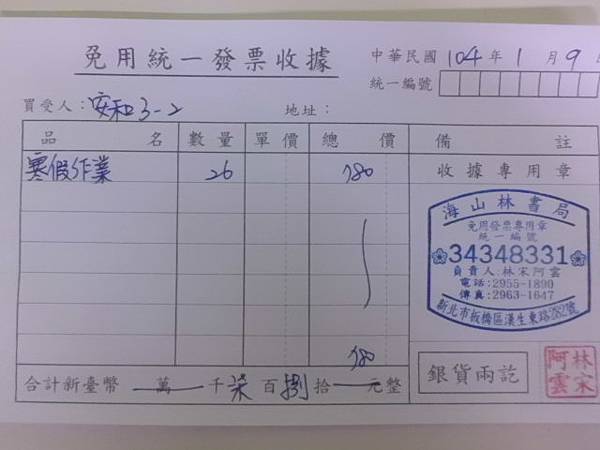 免用統一發票收據
中華民國 104 年 1 月 9 日
統一編號
買受人：安和3-2 地址：
品名 數量 單價 總價 備註
寒假作業 26 780 收據專用章
海山林書局
免用發票專用章
統一編號
34348331
負責人：林宋阿雲
電話：2955-1890
傳真：2963-1647
新北市板橋區漢生東路282號
780
合計新臺幣 萬 千 柒 百 捌 拾 元整
銀貨兩訖
林宋阿雲